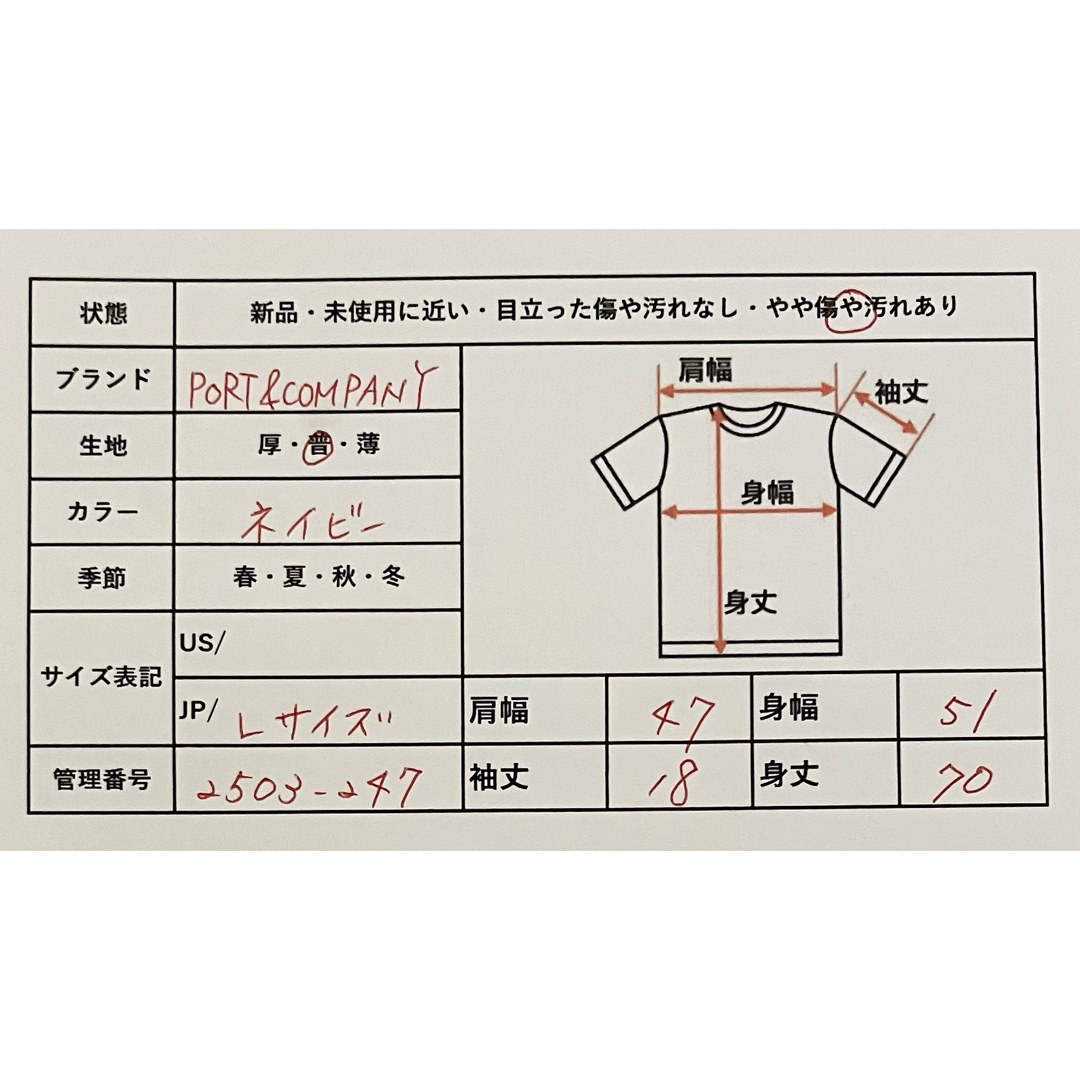 状態 新品・未使用に近い・目立った傷や汚れなし・やや傷や汚れあり
ブランド PORT&COMPANY
生地 厚・普・薄
カラー ネイビー
季節 春・夏・秋・冬
サイズ表記 US/
JP/ Lサイズ
管理番号 2503-247
肩幅
袖丈
身幅
身丈
肩幅 47 身幅 51
袖丈 18 身丈 70